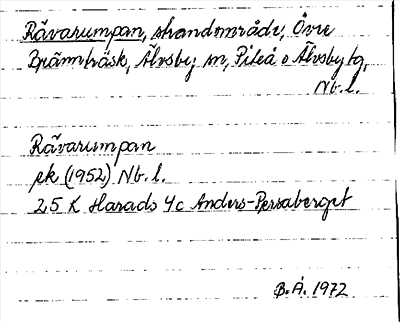 Rävarumpan, strandområde, Övre
Brännträsk, Älvsby sn, Piteå o Älvsby tg,
Nb. l.
Rävarumpan
ek (1952) Nb. l.
25 K Harads 4c Anders-Persaberget
B.Å. 1972